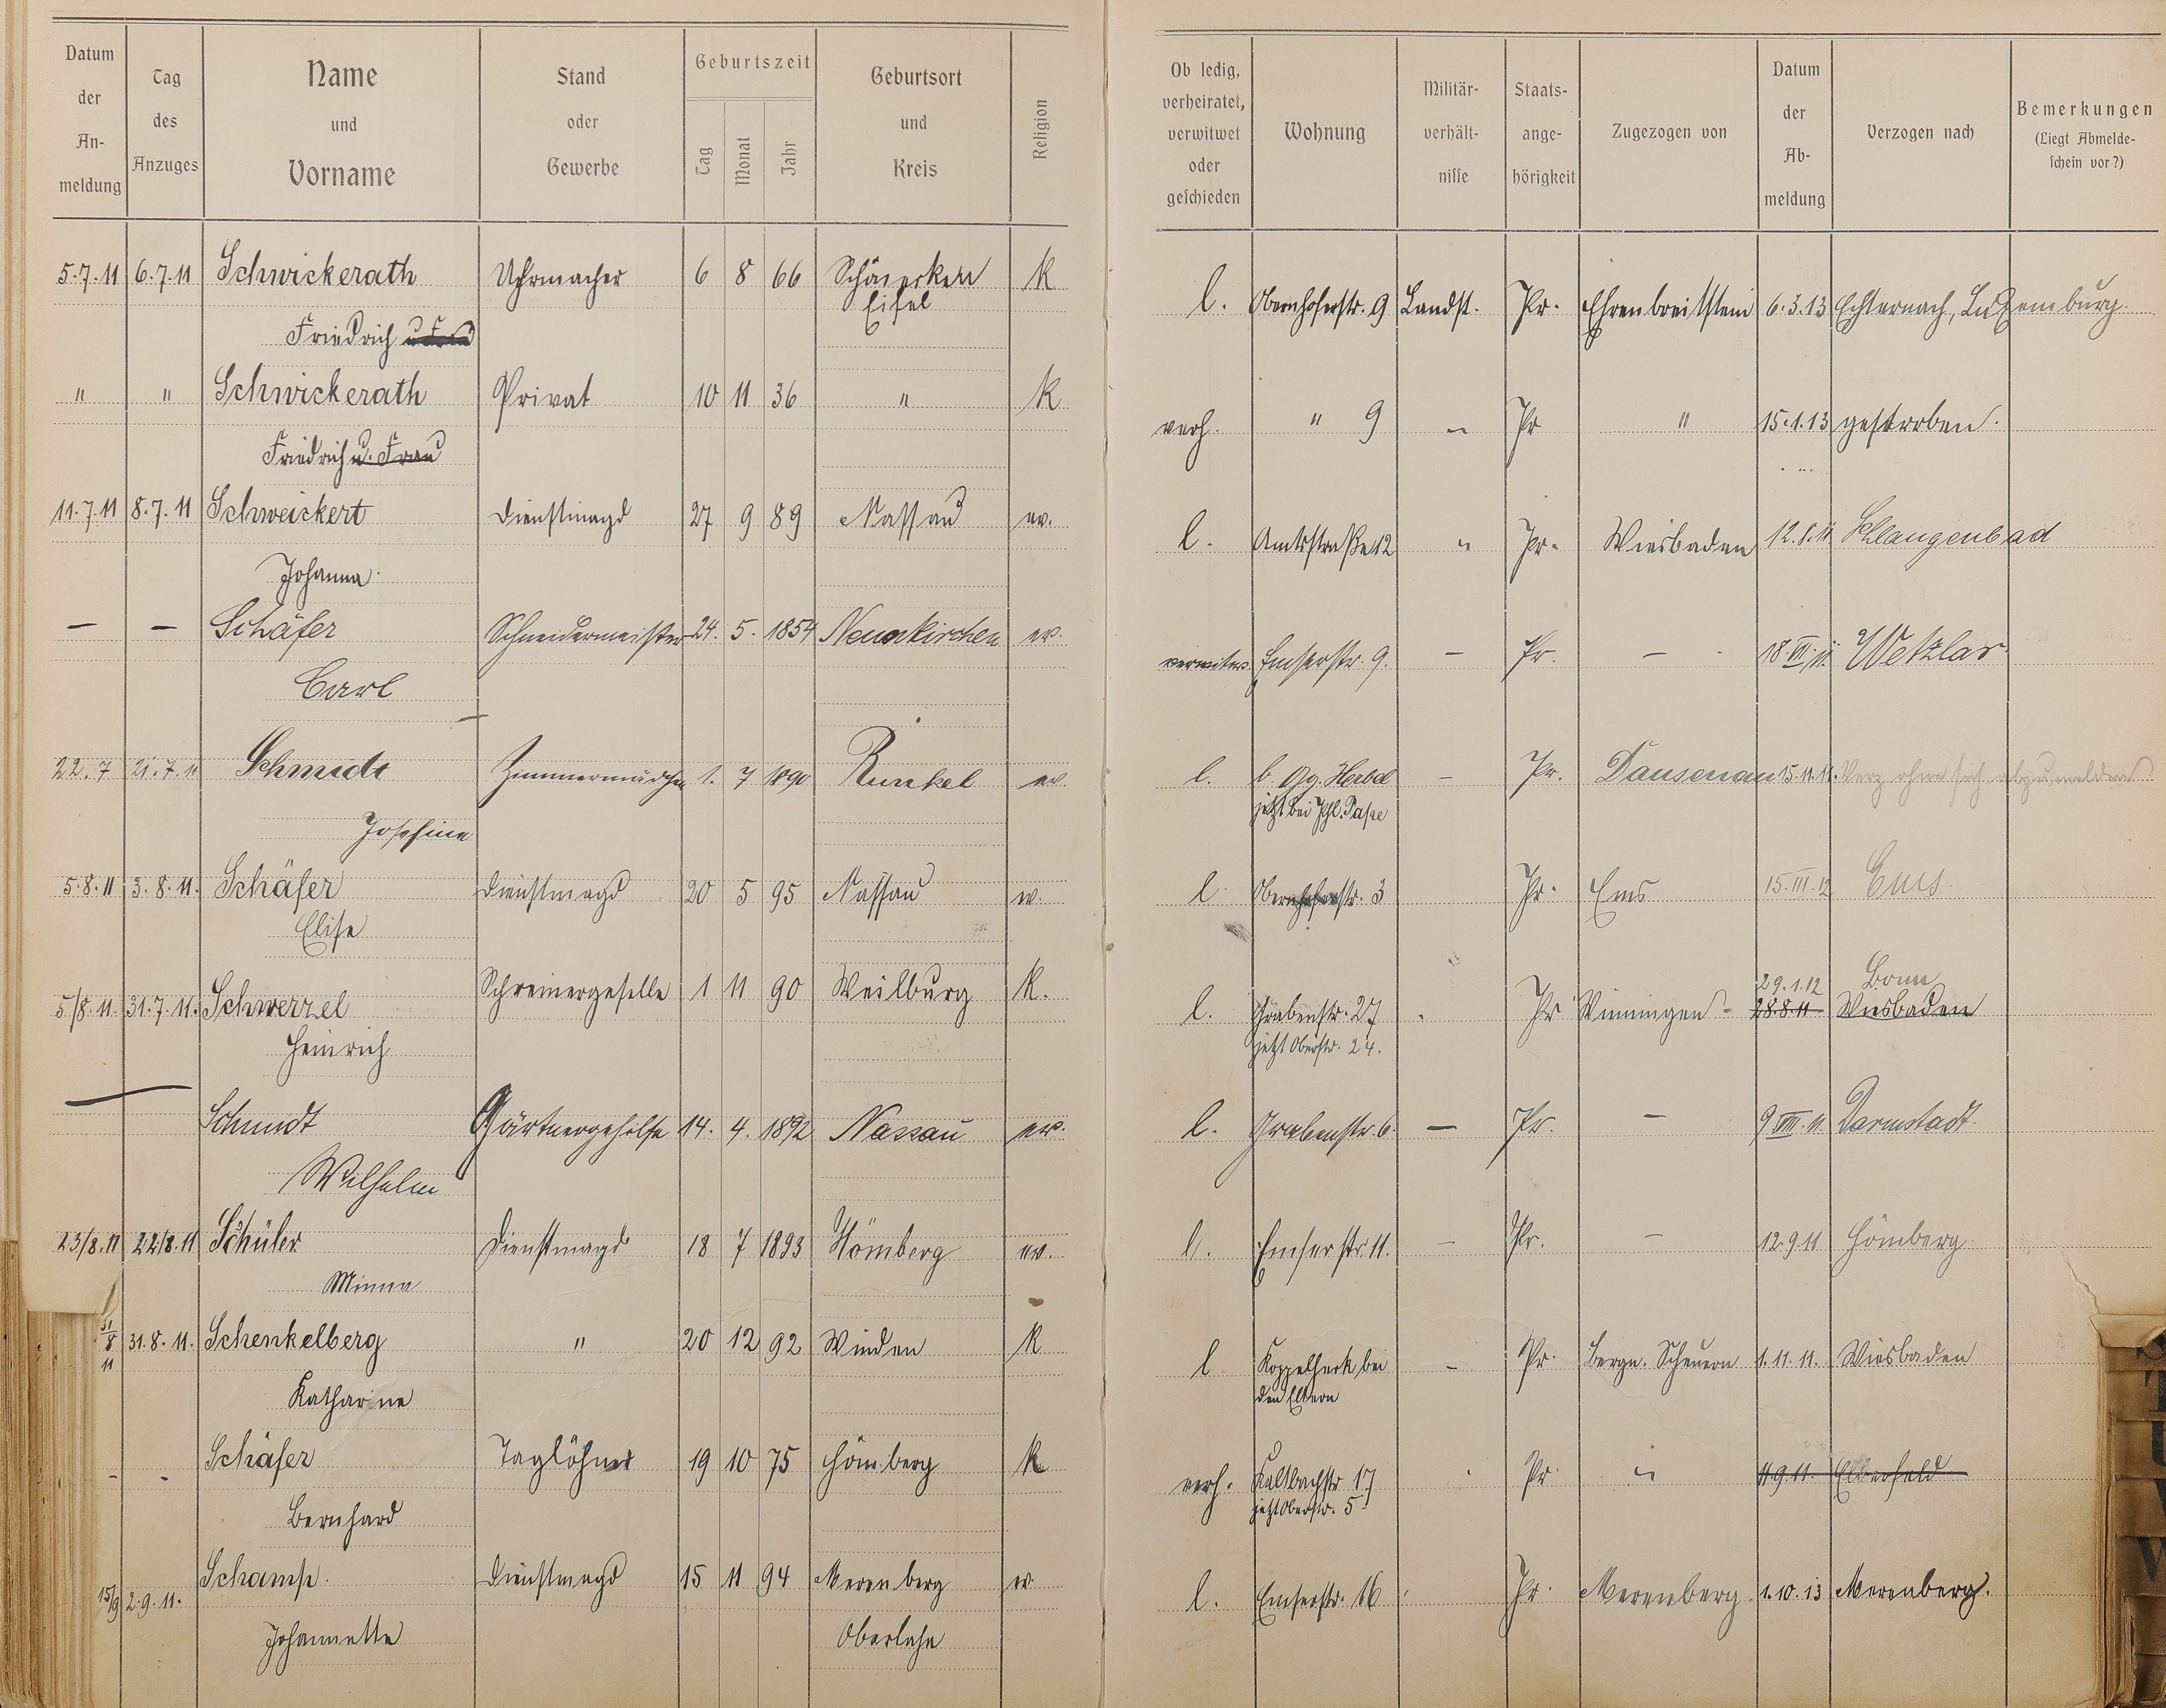 Datum der An- meldung | Tag des Anzuges | Name und Vorname | Stand oder Gewerbe | Geburtszeit Tag Monat Jahr | Geburtsort und Kreis | Religion | Ob ledig, verheiratet, verwitwet oder geschieden | Wohnung | Militär- verhält- nisse | Staats- ange- hörigkeit | Zugezogen von | Datum der Ab- meldung | Verzogen nach | Bemerkungen (Liegt Abmelde- schein vor?)
5.7.11 6.7.11 Schwickerath Uhrmacher 6 8 66 Schönecken K l. Obernhoferstr. 9 Landst. Pr. Ehrenbreitstein 6.3.13 Echternach, Luxemburg.
Friedrich u Frau Eifel
" " Schwickerath Privat 10 11 36 " K verh. " 9 " Pr " 15.1.13 gestorben.
Friedrich u. Frau
11.7.11 8.7.11 Schweickert Dienstmagd 27 9 89 Nassau ev. l. Amtsstraße 12 " Pr. Wiesbaden 12.8.11 Schlangenbad
Johanna.
— — Schäfer Schneidermeister 24. 5. 1854 Neunkirchen ev. verwitw. Emserstr. 9. — Pr. — Wetzlar
Carl
22.7 21.7.11 Schmidt Zimmermädchen 1. 7 1890 Runkel ev. l. b. Gg. Herbel – Pr. Dausenau 15.11.11. Verz. ohne sich abzumelden
Josefine jetzt bei
5.8.11 3.8.11. Schäfer Dienstmagd 20 5 95 Nassau ev. l. Obernhoferstr. 3 Pr. Ems 15.III.12 Ems
Elise
29.1.12 Bonn
5/8.11. 31.7.11. Schwerzel Schreinergeselle 1 11 90 Weilburg K. l. Grabenstr. 27 Pr Winningen 28.8.11 Wiesbaden
Heinrich jetzt Oberstr. 24.
Schmidt Gärtnergehilfe 14. 4. 1892 Nassau ev. l. Grabenstr. 6 — Pr. — 9.VIII.11. Darmstadt.
Wilhelm
23/8.11 22/8.11 Schüler Dienstmagd 18 7 1893 Hömberg ev. l. Emserstr. 11. – Pr. – 12.9.11 Hömberg
Minna
31/8 11 31.8.11. Schenkelberg " 20 12 92 Winden K l Koppelheck bei – Pr. Bergn. Scheuern 1.11.11. Wiesbaden
Katharine den Eltern
- - Schäfer Taglöhner 19 10 75 Hömberg K verh. Kaltbachstr. 17 Pr " 11.9.11. Elberfeld
Bernhard jetzt Oberstr. 5.
15/9 2.9.11. Schamp. Dienstmagd 15 11 94 Merenberg ev. l. Emserstr. 16 Pr. Merenberg 1.10.13 Merenberg.
Johannette Oberlahn